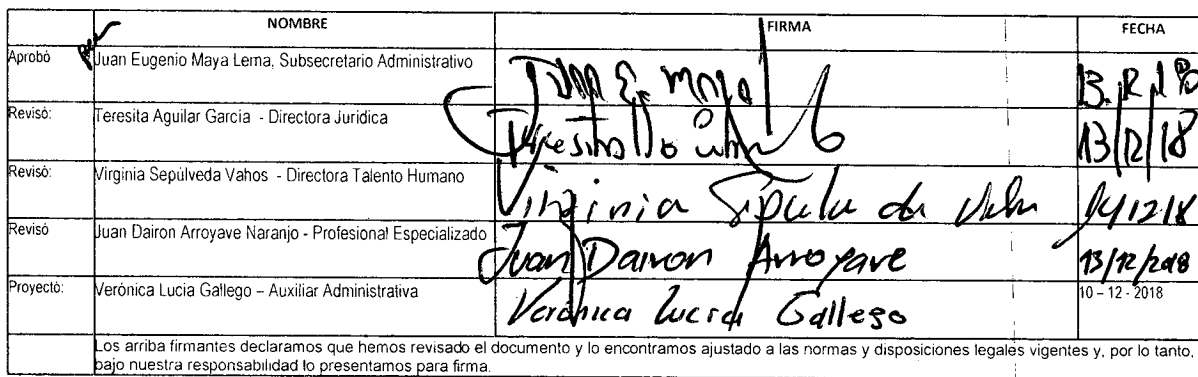 NOMBRE FIRMA FECHA
Aprobó Juan Eugenio Maya Lema, Subsecretario Administrativo Juan E. Maya 13.12.18
Revisó: Teresita Aguilar García - Directora Jurídica Teresita 13/12/18
Revisó: Virginia Sepúlveda Vahos - Directora Talento Humano Virginia 141218
Revisó Juan Dairon Arroyave Naranjo - Profesional Especializado Juan Dairon Arroyave 13/12/2018
Proyectó: Verónica Lucia Gallego – Auxiliar Administrativa Verónica Lucia Gallego 10 – 12 - 2018
Los arriba firmantes declaramos que hemos revisado el documento y lo encontramos ajustado a las normas y disposiciones legales vigentes y, por lo tanto,
bajo nuestra responsabilidad lo presentamos para firma.